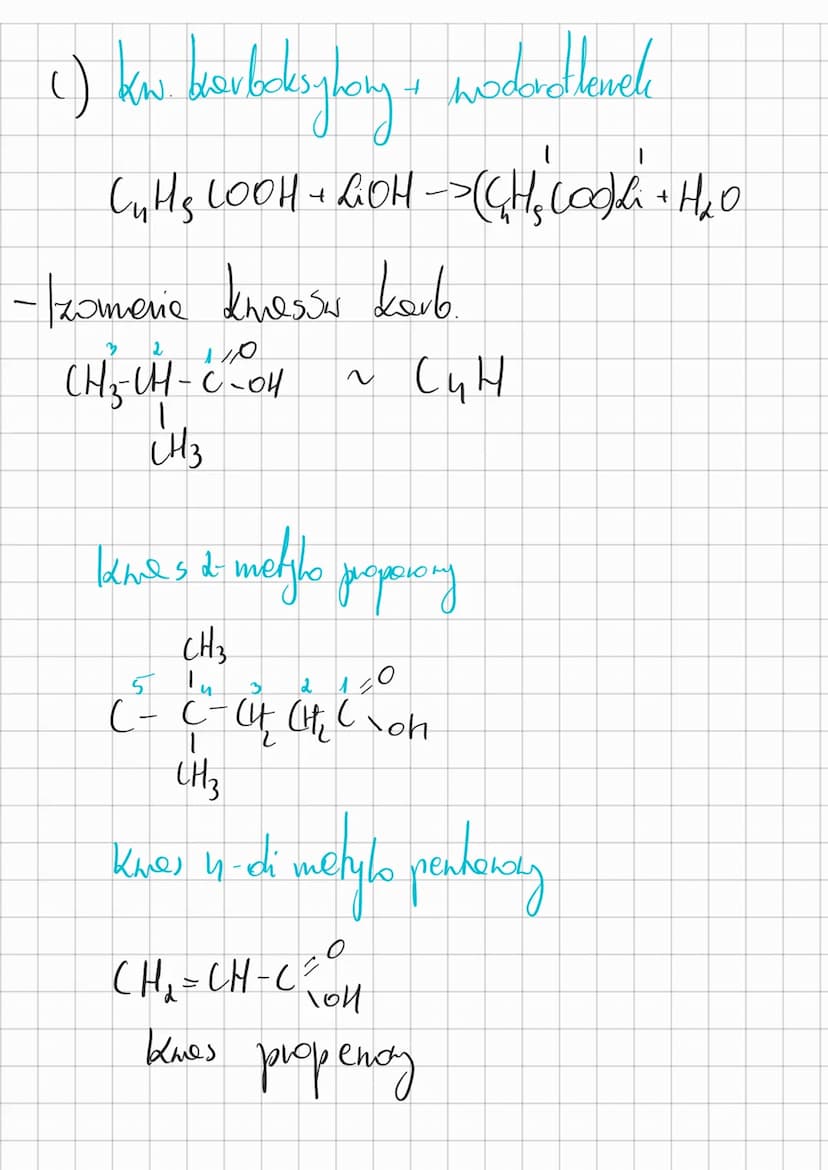 c) kw. karboksylowy + wodorotlenek
C4H5COOH + LiOH -> (C4H5COO)Li + H2O
- Izomeria kwasów karb.
3 2 1 O
CH3-CH-C-OH ~ C4H
CH3
kwas 2-metylo propanowy
CH3
5 4 3 2 1 O
C - C - CH2 CH2 C OH
CH3
Kwas 4-di metylo pentanowy
O
CH2=CH-C
OH
kwas propenowy